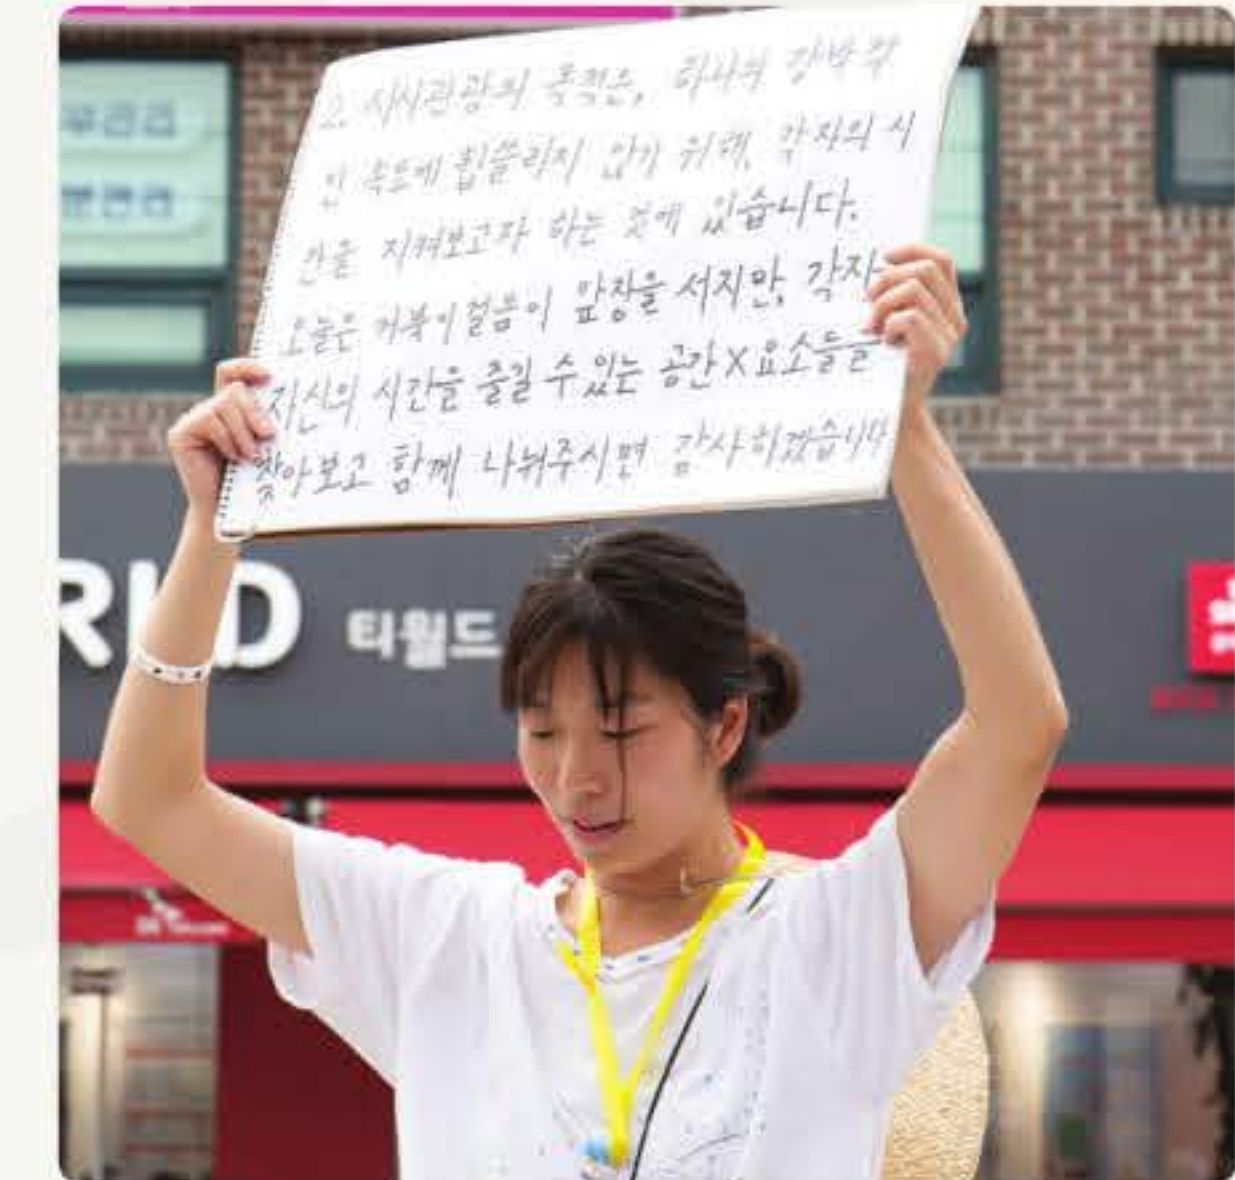 2. 시시관광의 목적은, 하나의 강박적
인 속도에 휩쓸리지 않기 위해, 각자의 시
간을 지켜보고자 하는 것에 있습니다.
오늘은 거북이걸음이 앞장을 서지만, 각자
자신의 시간을 즐길 수 있는 공간X요소들을
찾아보고 함께 나눠주시면 감사하겠습니다
RLD 티월드